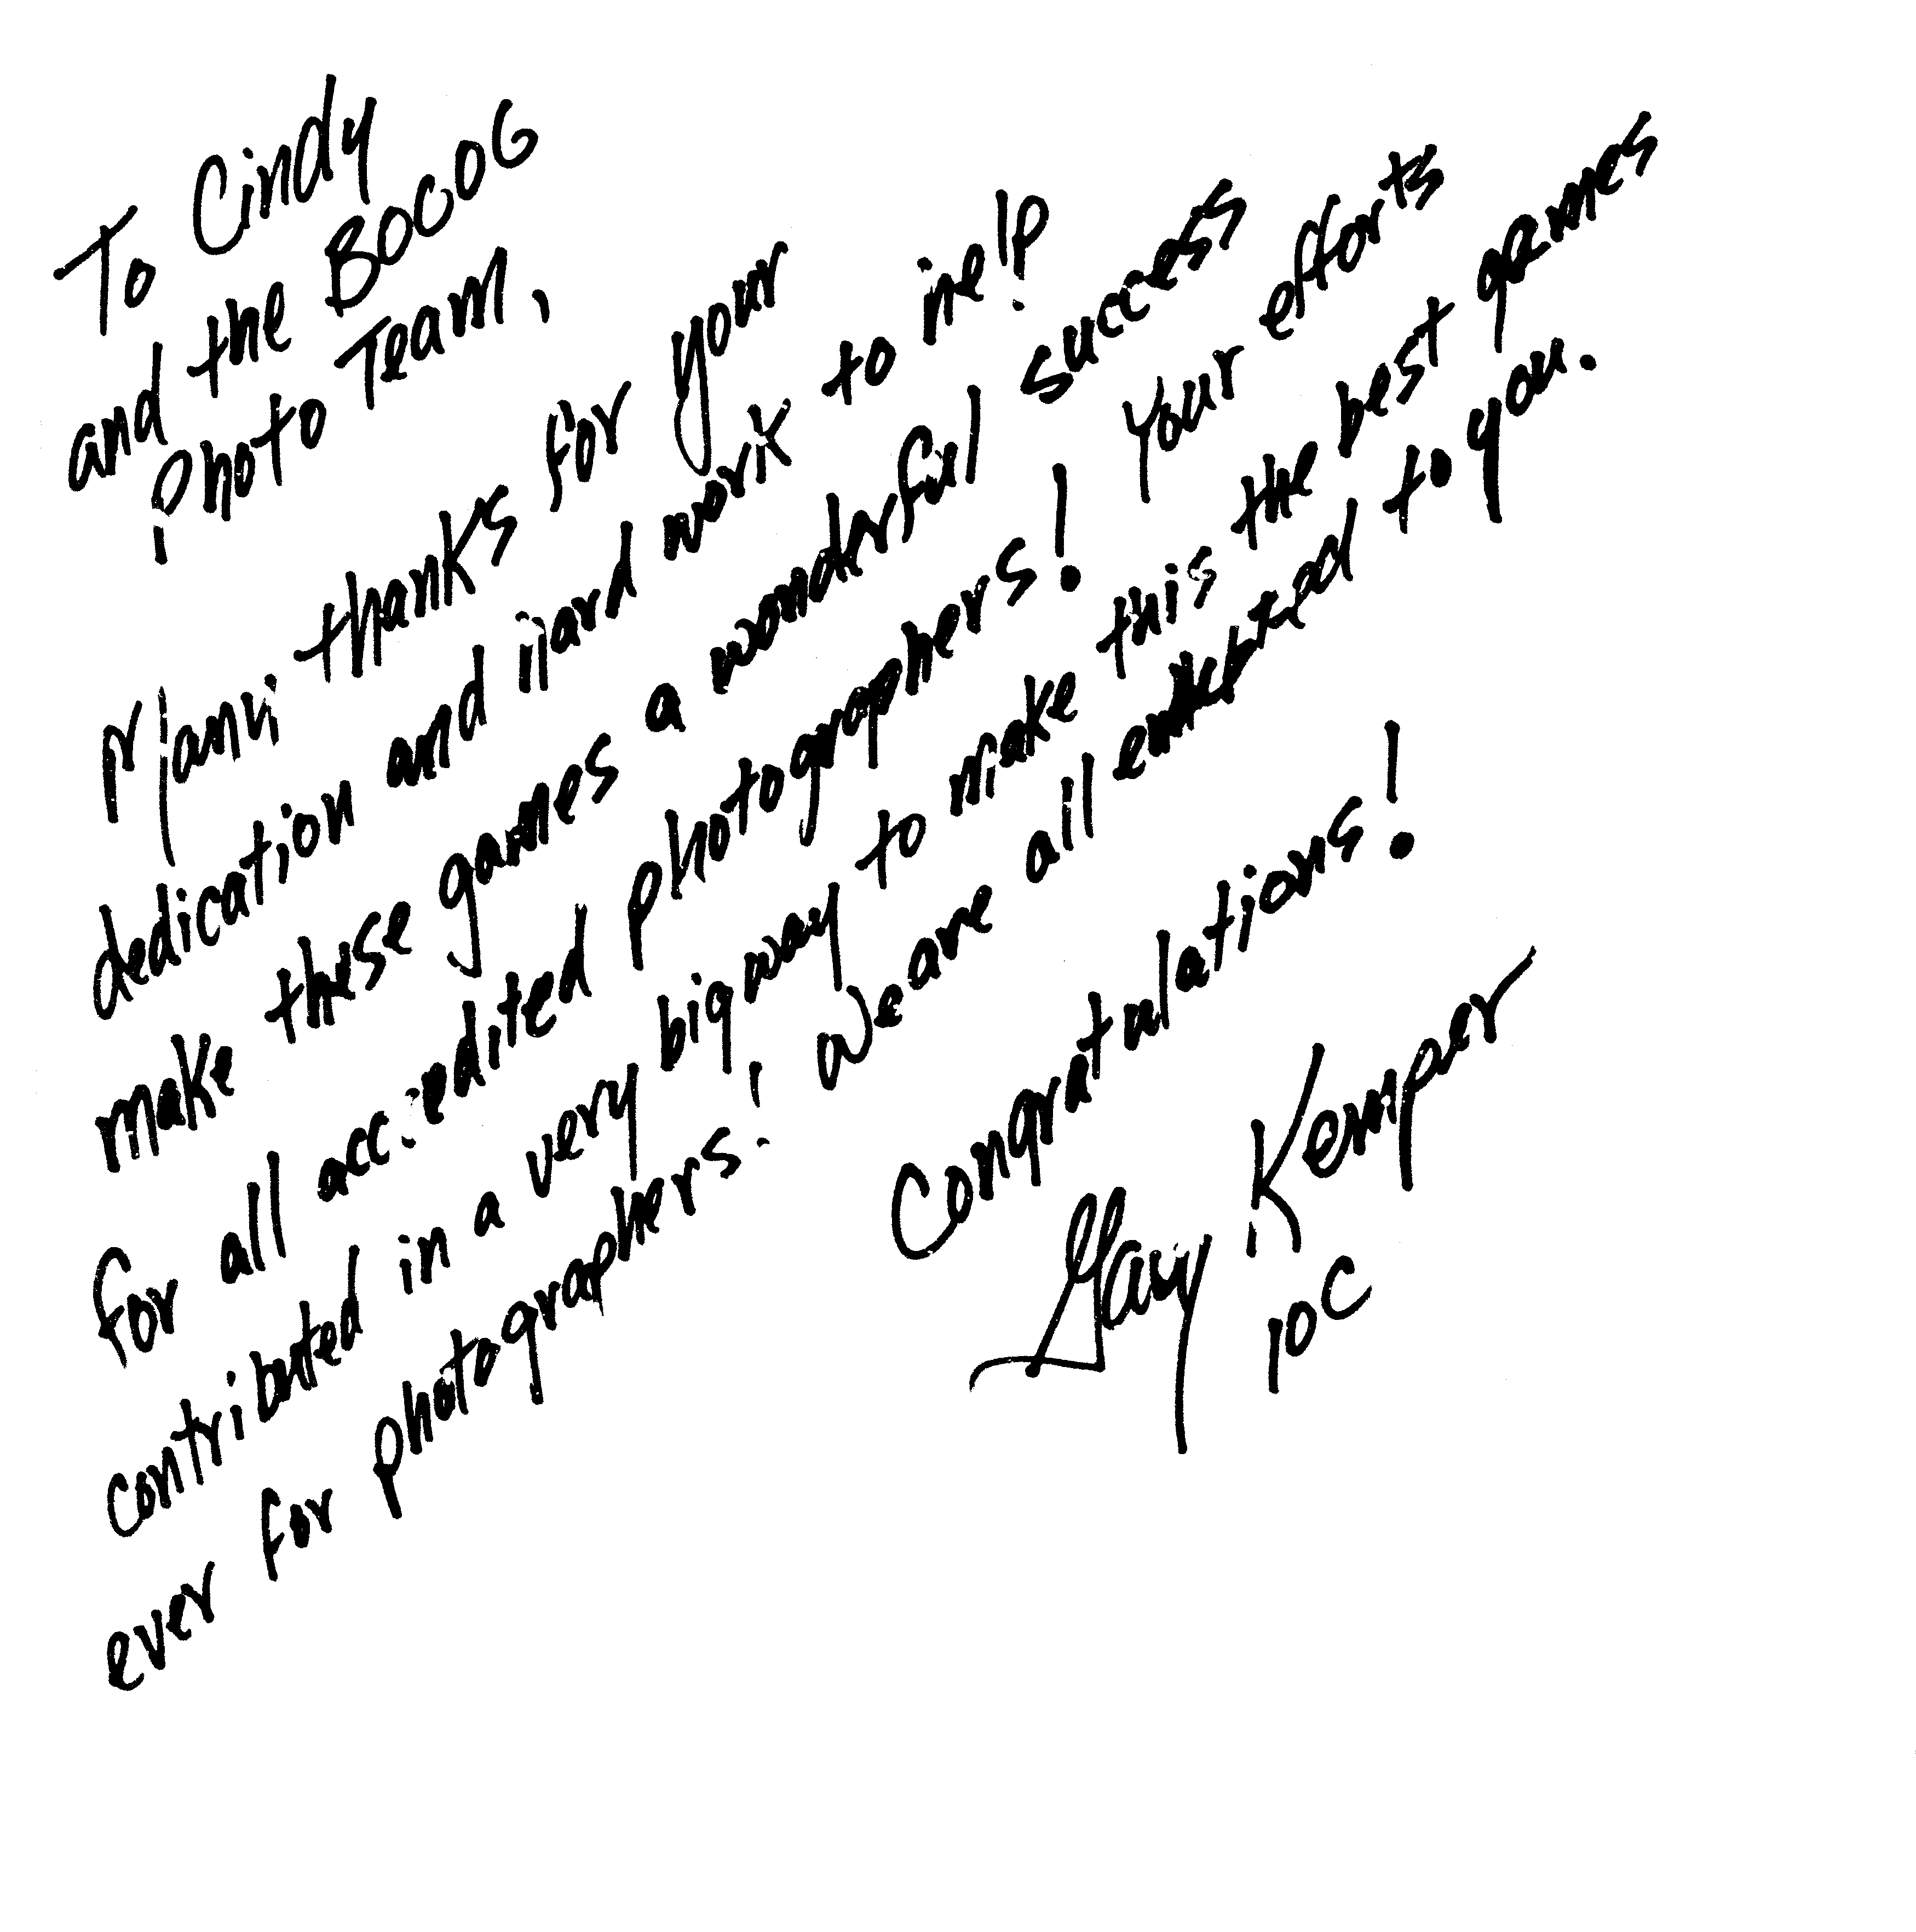 To Cindy
and the BOCOG
Photo Team,
Many thanks for your
dedication and hard work to help
make these games a wonderful success
for all accredited photographers! Your efforts
contributed in a very big way to make this the best games
ever for photographers! We are all indebted to you.
Congratulations!
Gary Kemper
IOC